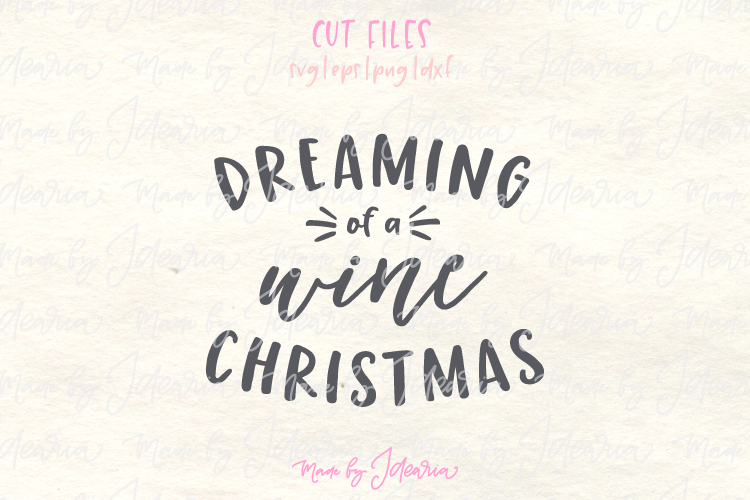 CUT FILES
svg|eps|png|dxf
DREAMING
of a
wine
CHRISTMAS
Made by Idearia